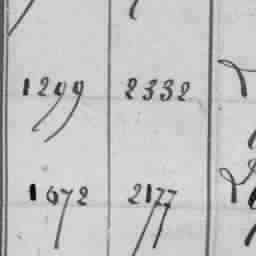 1299 2332
1672 2177